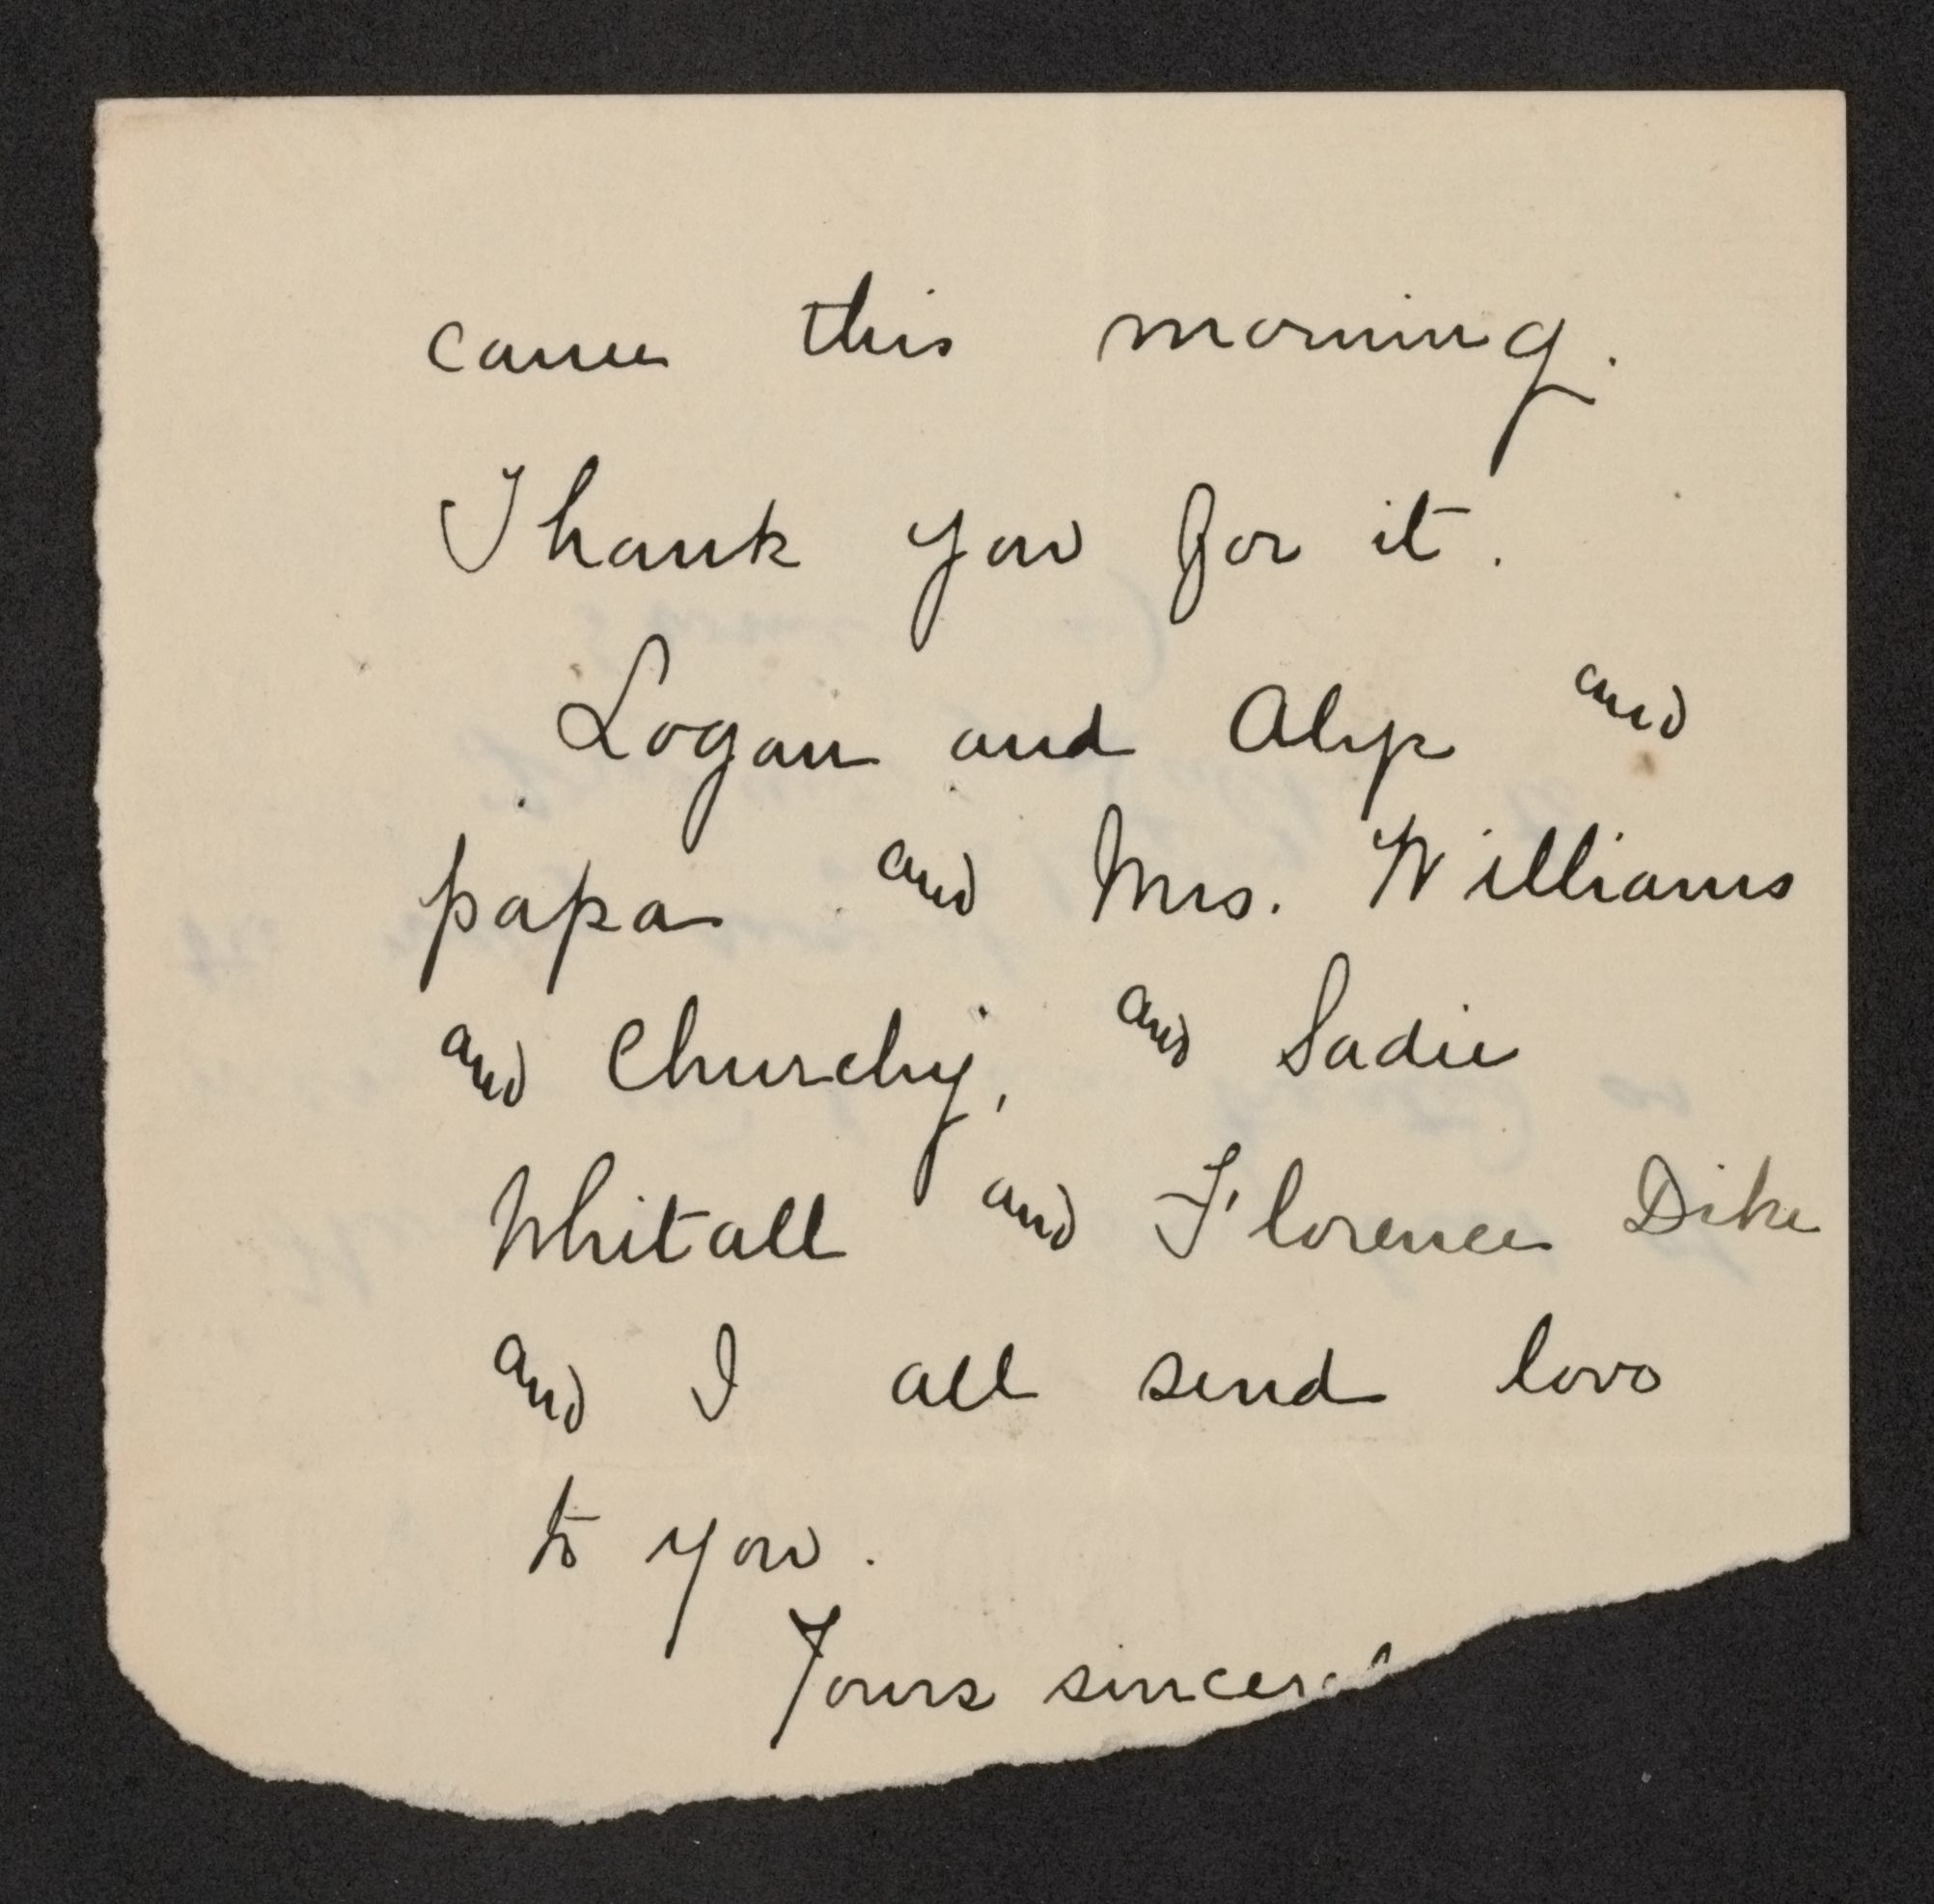 came this morning.
Thank you for it.
Logan and Alys and
papa and Mrs. Williams
and Churchy, and Sadie
Whitall and Florence Dike
and I all send love
to you.
Yours sincerel